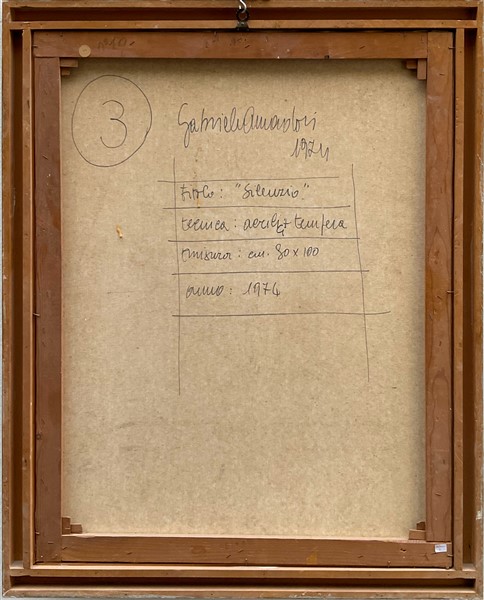 3
Gabriele Amadori
1974
titolo: "Silenzio"
tecnica: acrile + tempera
misura: cm. 80 x 100
anno: 1974